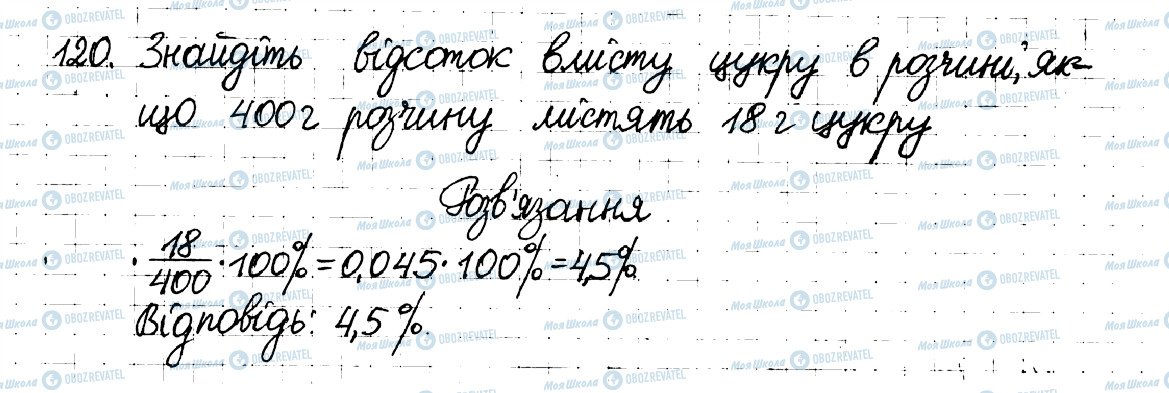 120. Знайдіть відсоток вмісту цукру в розчині, як-
що 400 г розчину містять 18 г цукру
Розв'язання
18/400 · 100% = 0,045 · 100% = 4,5%
Відповідь: 4,5%.